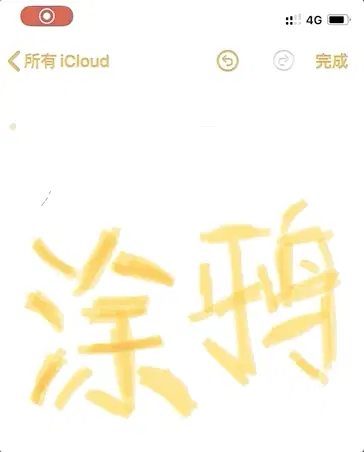 4G
所有 iCloud 完成
涂鸦